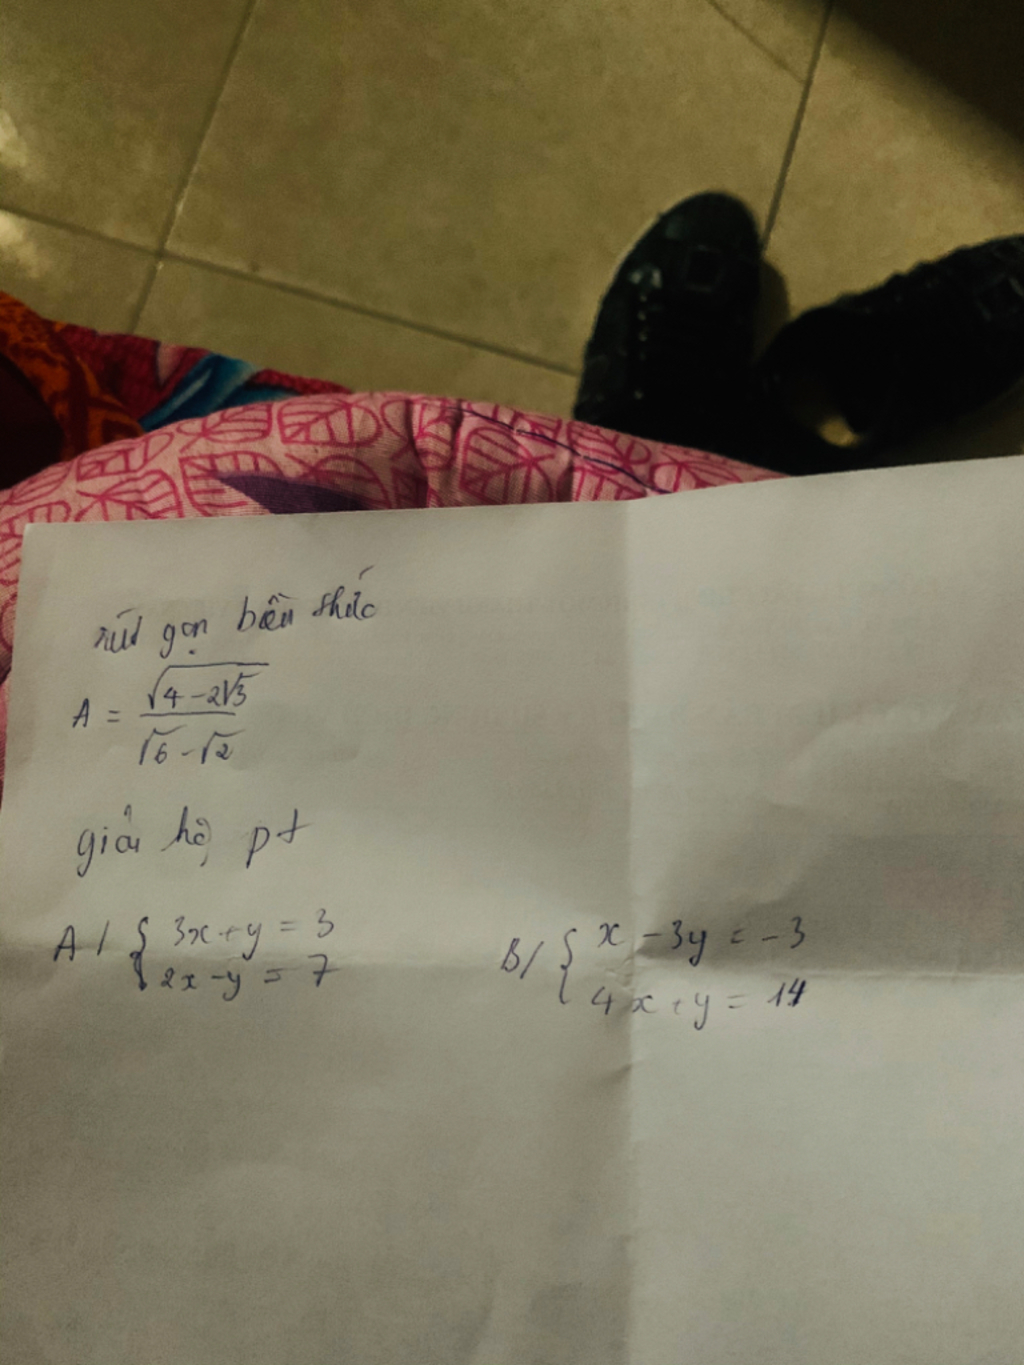 rút gọn biểu thức
A = \frac{\sqrt{4-2\sqrt{3}}}{\sqrt{6}-\sqrt{2}}
giải hệ pt
A/ { 3x+y = 3
2x-y = 7
B/ { x-3y = -3
4x+y = 14